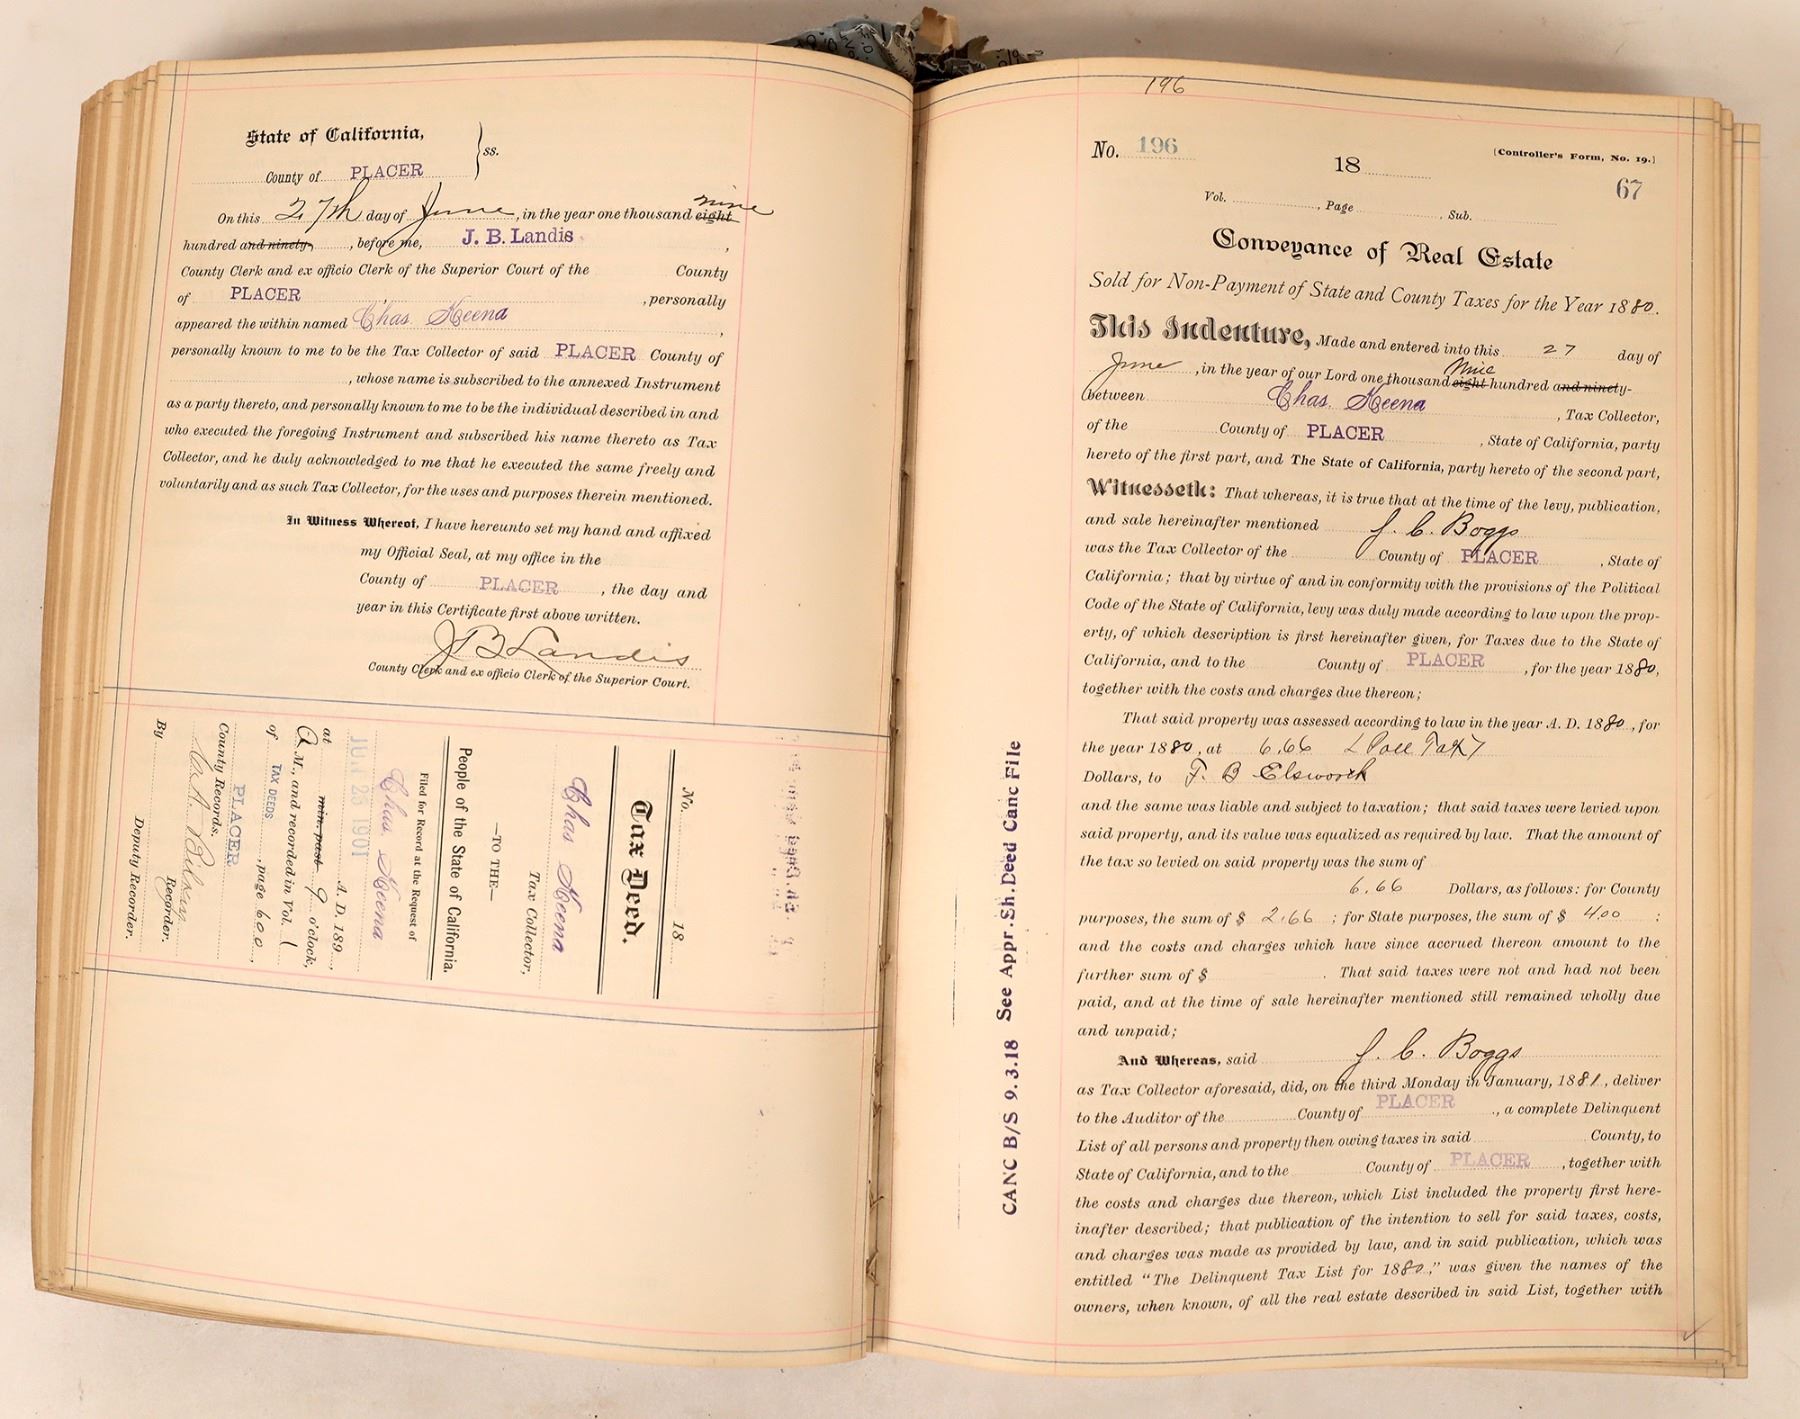 State of California,
County of PLACER } ss.
On this 27th day of June, in the year one thousand eight nine
hundred and ninety, before me, J. B. Landis,
County Clerk and ex officio Clerk of the Superior Court of the County
of PLACER, personally
appeared the within named Chas. Keena,
personally known to me to be the Tax Collector of said PLACER County of
, whose name is subscribed to the annexed Instrument
as a party thereto, and personally known to me to be the individual described in and
who executed the foregoing Instrument and subscribed his name thereto as Tax
Collector, and he duly acknowledged to me that he executed the same freely and
voluntarily and as such Tax Collector, for the uses and purposes therein mentioned.
In Witness Whereof, I have hereunto set my hand and affixed
my Official Seal, at my office in the
County of PLACER, the day and
year in this Certificate first above written.
J B Landis
County Clerk and ex officio Clerk of the Superior Court.
No. 18
Tax Deed.
Chas Keena
Tax Collector,
—TO THE—
People of the State of California.
Filed for Record at the Request of
Chas. Keena
JUN 28 1901 A. D. 189
at min. past 9 o'clock,
A M., and recorded in Vol. 1
of TAX DEEDS, page 600,
PLACER
County Records.
Recorder.
By Deputy Recorder.
196
No. 196
18
[Controller's Form, No. 19.]
67
Vol. , Page , Sub.
Conveyance of Real Estate
Sold for Non-Payment of State and County Taxes for the Year 1880.
This Indenture, Made and entered into this 27 day of
June, in the year of our Lord one thousand eight Nine hundred and ninety-
between Chas. Keena, Tax Collector,
of the County of PLACER, State of California, party
hereto of the first part, and The State of California, party hereto of the second part,
Witnesseth: That whereas, it is true that at the time of the levy, publication,
and sale hereinafter mentioned J. C. Boggs
was the Tax Collector of the County of PLACER, State of
California; that by virtue of and in conformity with the provisions of the Political
Code of the State of California, levy was duly made according to law upon the prop-
erty, of which description is first hereinafter given, for Taxes due to the State of
California, and to the County of PLACER, for the year 1880,
together with the costs and charges due thereon;
That said property was assessed according to law in the year A. D. 1880, for
the year 1880, at 6.66 Poll Tax
Dollars, to F. B Elsworth
and the same was liable and subject to taxation; that said taxes were levied upon
said property, and its value was equalized as required by law. That the amount of
the tax so levied on said property was the sum of
6.66 Dollars, as follows: for County
purposes, the sum of $ 2.66; for State purposes, the sum of $ 4.00;
and the costs and charges which have since accrued thereon amount to the
further sum of $ . That said taxes were not and had not been
paid, and at the time of sale hereinafter mentioned still remained wholly due
and unpaid;
And Whereas, said J. C. Boggs
as Tax Collector aforesaid, did, on the third Monday in January, 1881, deliver
to the Auditor of the County of PLACER, a complete Delinquent
List of all persons and property then owing taxes in said County, to
State of California, and to the County of PLACER, together with
the costs and charges due thereon, which List included the property first here-
inafter described; that publication of the intention to sell for said taxes, costs,
and charges was made as provided by law, and in said publication, which was
entitled "The Delinquent Tax List for 1880," was given the names of the
owners, when known, of all the real estate described in said List, together with
CANC B/S 9.3.18 See Appr.Sh.Deed Canc File